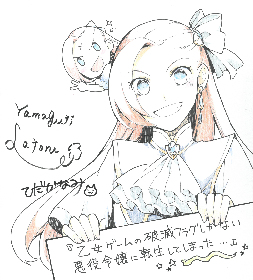 Yamaguti
Satoru
ひだかなみ
『乙女ゲームの破滅フラグしかない
悪役令嬢に転生してしまった…』